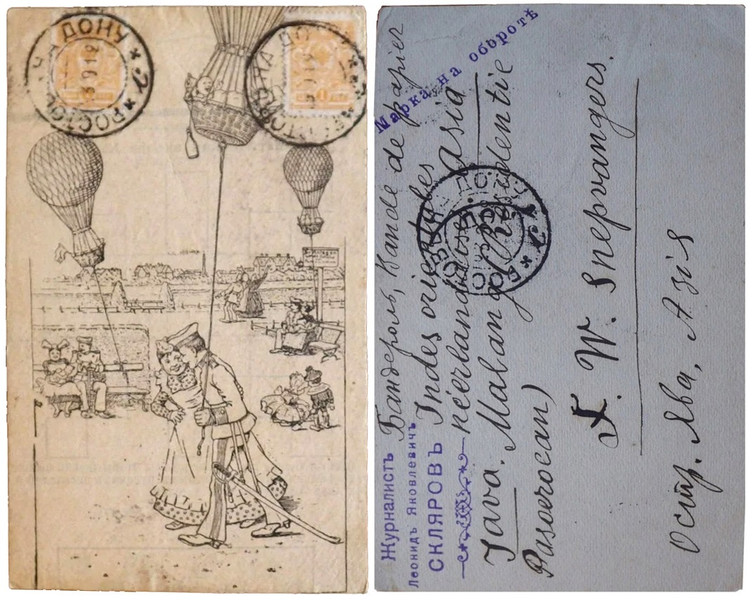 НА ДОНУ
РОСТОВ
НА ДО
Марка на оборотѣ
Бандероль, Bande de papier
Indes orientales
neerlandaises. Asia
Java. Malang
Pasoeroean)
F. W. Snepvangers.
Остр. Ява, Азія
Журналистъ
Леонидъ Яковлевичъ
СКЛЯРОВЪ